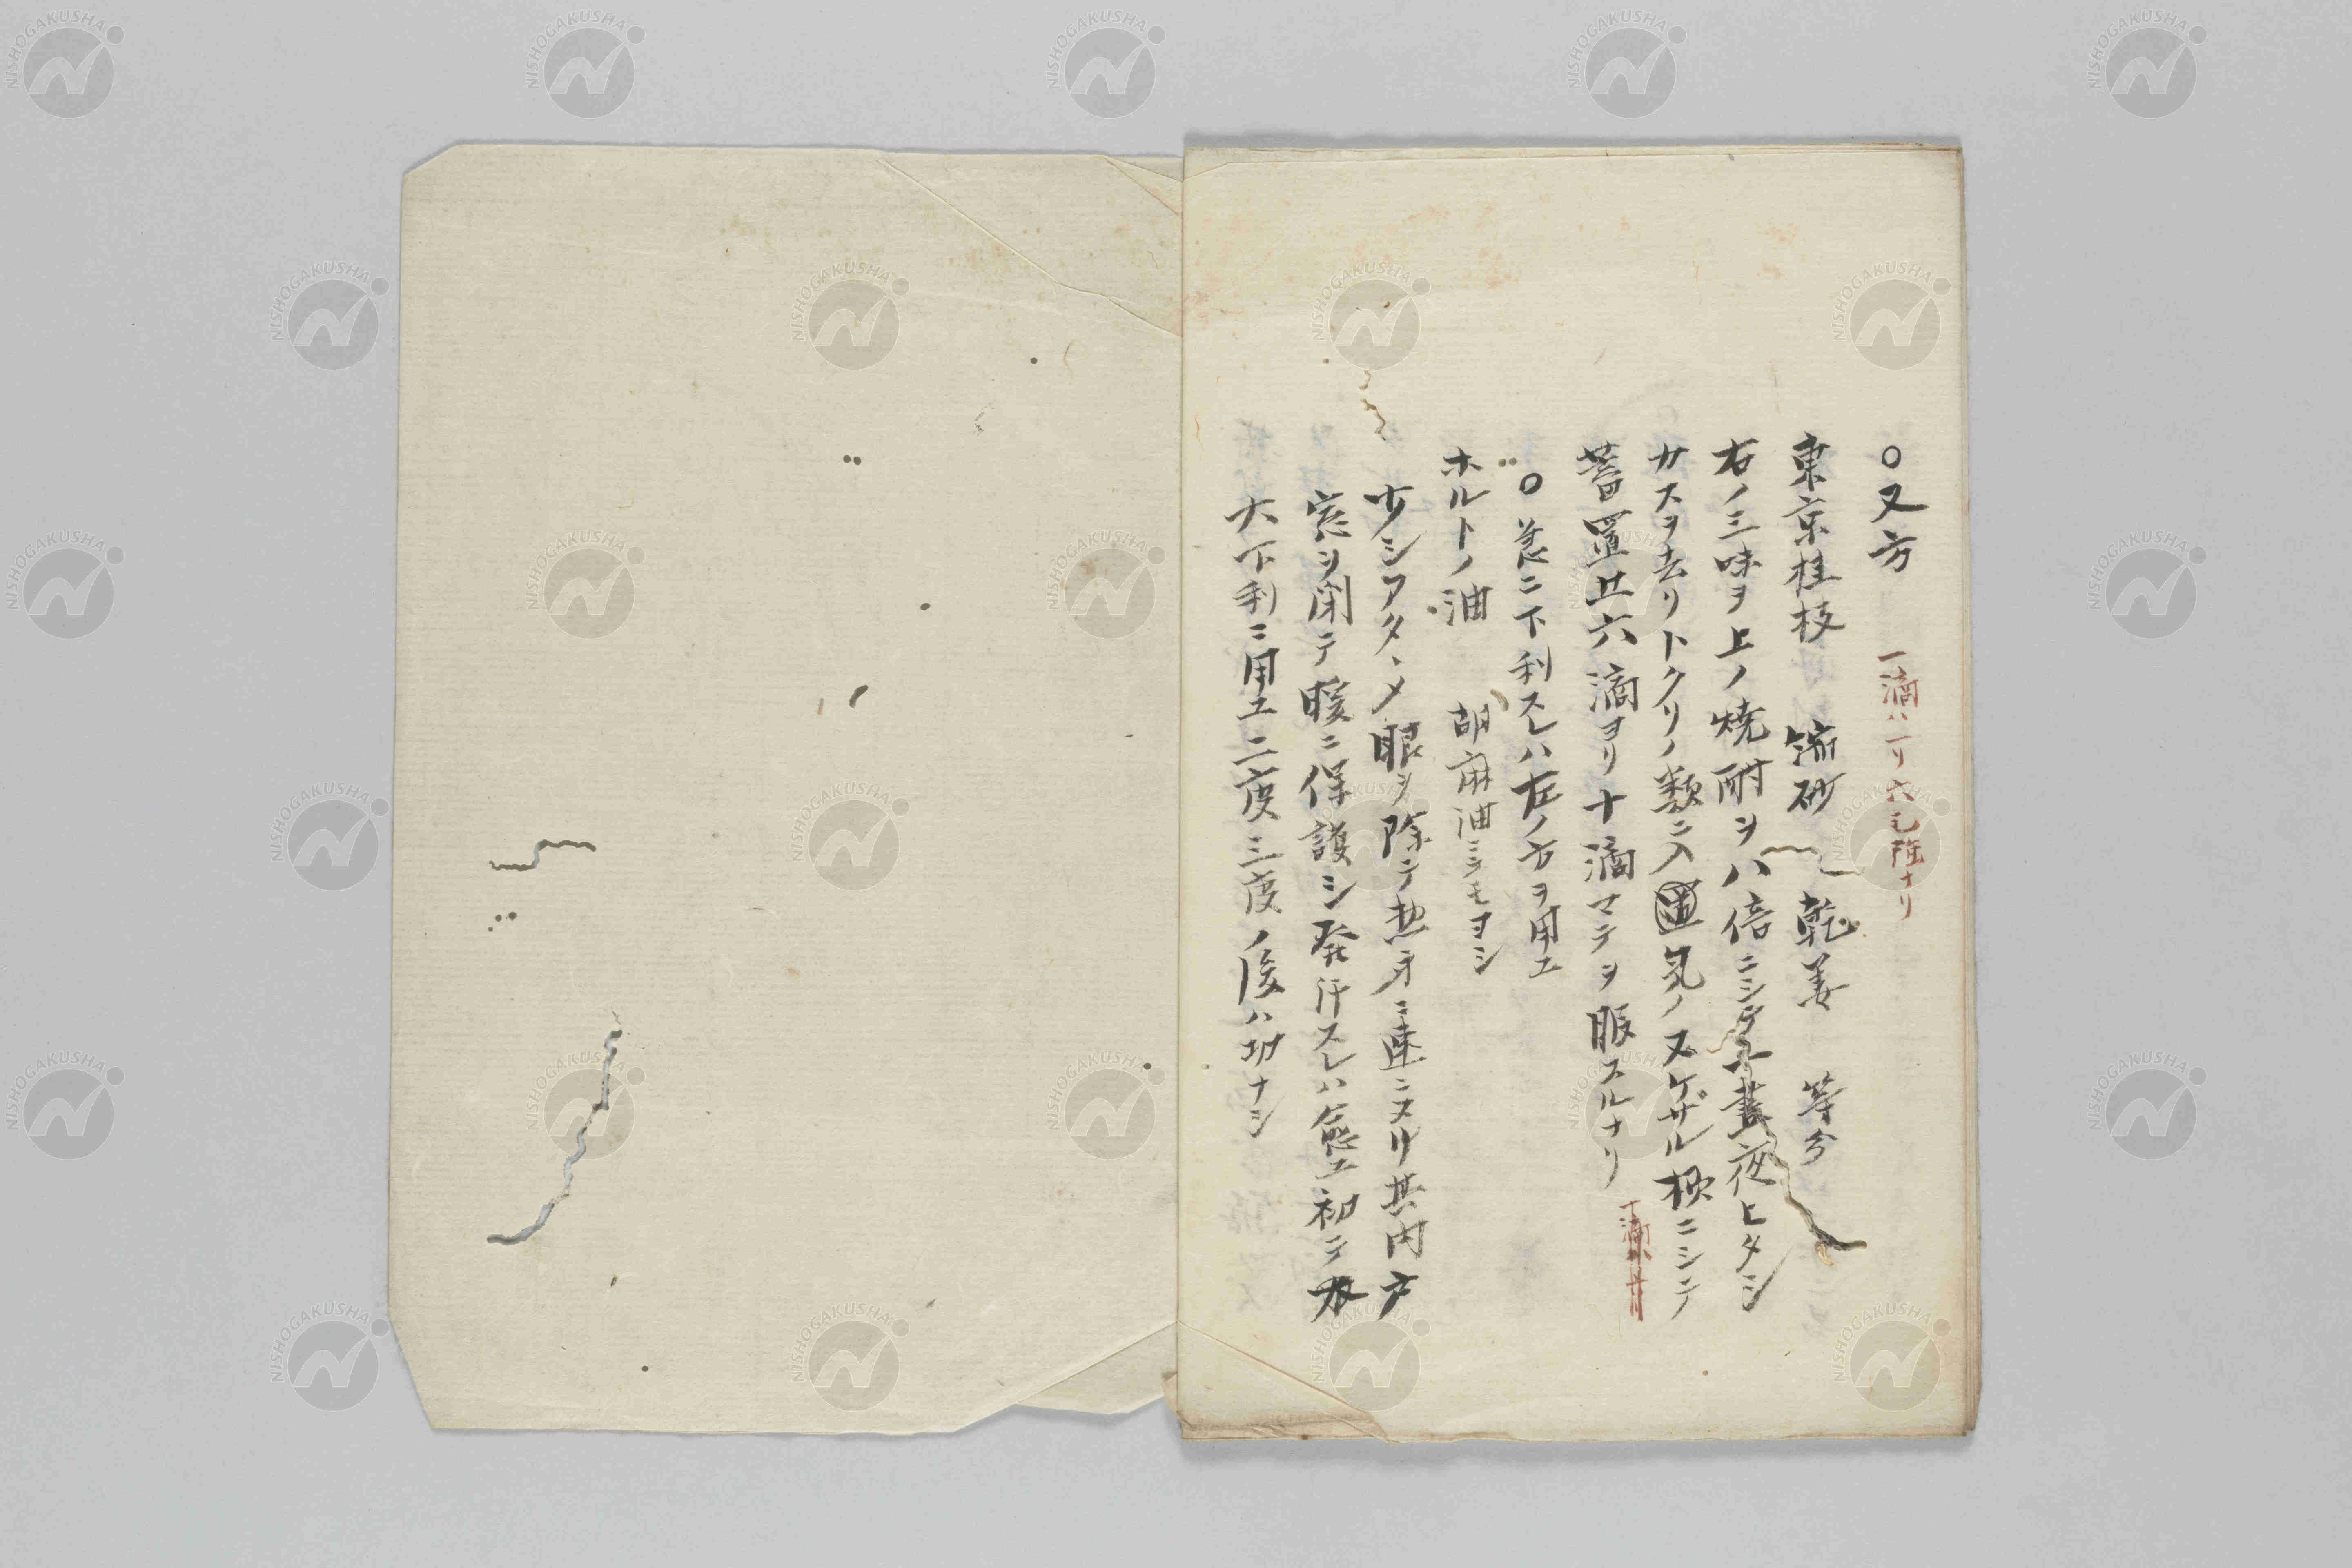 ○又方 一滴ハ一リ六毛強ナリ
東京桂枝 縮砂 乾姜 等分
右ノ三味ヲ上ノ焼酎ヲ八倍ニシテ一昼夜ヒタシ
カスヲ去リトクリノ類ニ入置気ノヌケザル様ニシテ
蓄置五六滴ヨリ十滴マテヲ服スルナリ
○若ニ下利スレハ左ノ方ヲ用ユ
ホルトノ油 胡麻油ニテモヨシ
少シアタヽメ眼ヲ除テ惣身ニ速ニヌリ其内戸
窓ヲ閉テ暖ニ保護シ発汗スレハ愈ユ初テ
大下利ニ用ユ二度三度ノ後ハ功ナシ
NISHOGAKUSHA